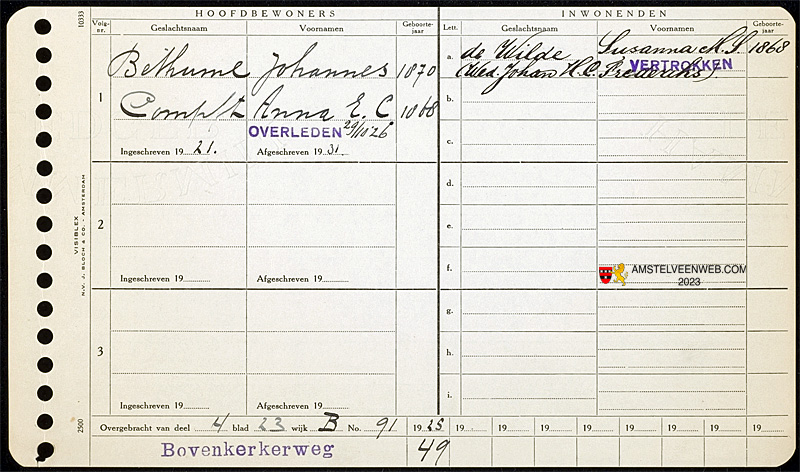 HOOFDBEWONERS
Volg-nr. Geslachtsnaam Voornamen Geboorte-jaar
Béthume Johannes 1870
1 Anna E. C 1868
OVERLEDEN 29/10'26
Ingeschreven 19 21. Afgeschreven 19 31
2
Ingeschreven 19 Afgeschreven 19
3
Ingeschreven 19 Afgeschreven 19
INWONENDEN
Lett. Geslachtsnaam Voornamen Geboorte-jaar
a. de Wilde Susanna M. S. 1868
(Wed. Johan H. C. Frederiks).
VERTROKKEN
b.
c.
d.
e.
f.
AMSTELVEENWEB.COM
2023
g.
h.
i.
Overgebracht van deel 4 blad 23 wijk B No. 91 19 25 19 19 19 19 19 19 19 19
Bovenkerkerweg 49
10333
VISIBLEX
N.V. J. BLOCH & CO. - AMSTERDAM
2500